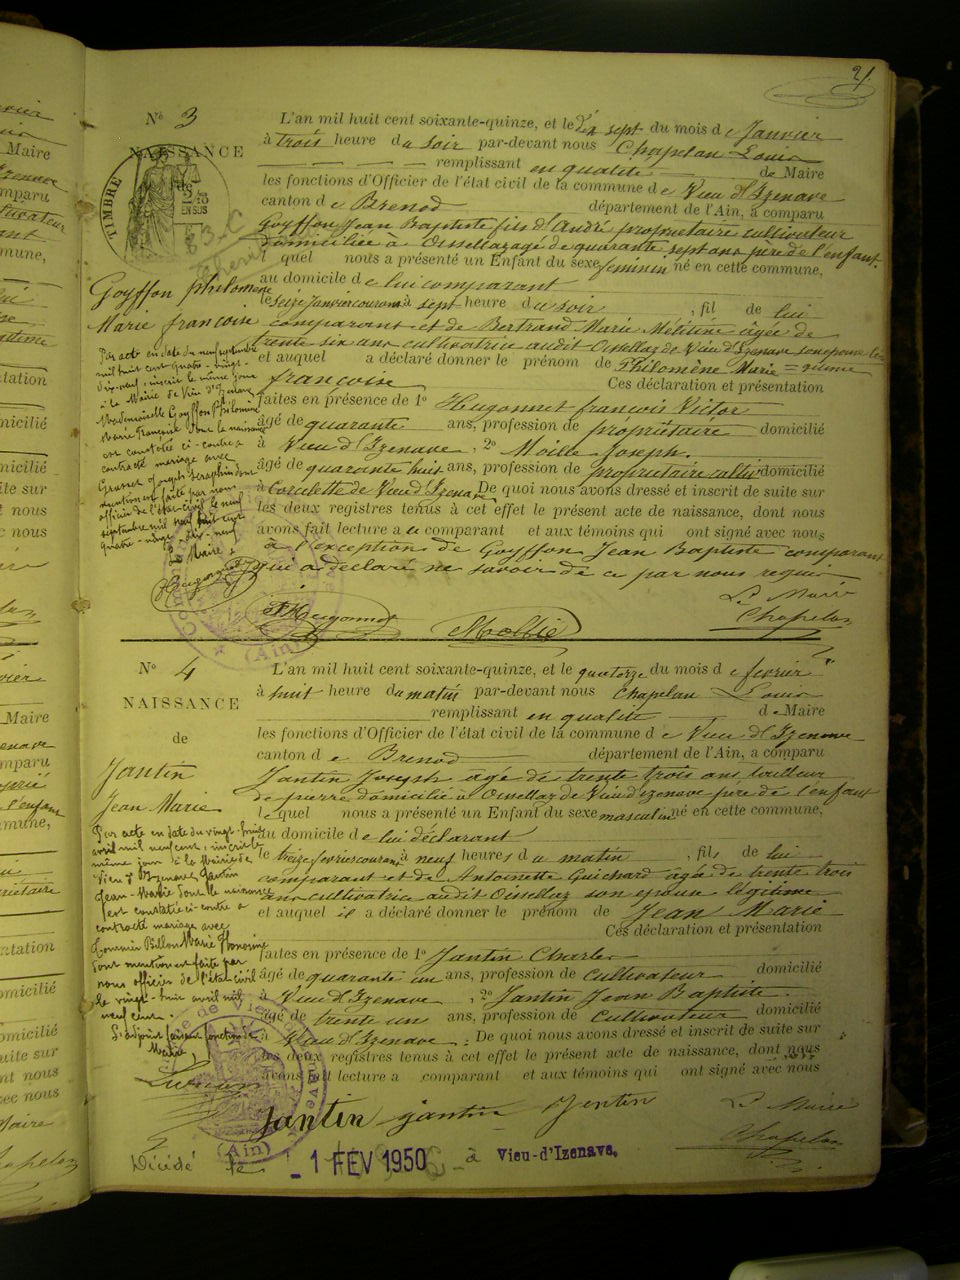 21
Nº 3
NAISSANCE
TIMBRE
2/10
EN SUS
L'an mil huit cent soixante-quinze, et le dix sept du mois de Janvier
à trois heure du soir par-devant nous Chapelan Louis
remplissant en qualité de Maire
les fonctions d'Officier de l'état civil de la commune de Vieu d'Izenave
canton de Brenod département de l'Ain, a comparu
Goyffon Jean Baptiste fils d'André propriétaire cultivateur
domicilié à Oisellaz agé de quarante sept ans père de l'enfant
l quel nous a présenté un Enfant du sexe feminin né en cette commune,
au domicile de lui comparant
le seize Janvier courant à sept heure du soir, fil de lui
comparant et de Bertrand Marie Mélitine agée de
trente six ans cultivatrice audit Oissellaz de Vieu d'Izenave son épouse
et auquel a déclaré donner le prénom de Philomène Marie
françoise Ces déclaration et présentation
faites en présence de 1º Hugonnet francois Victor
âgé de quarante ans, profession de propriétaire domicilié
à Vieu d'Izenave, 2º Moille Joseph.
âgé de quarante huit ans, profession de propriétaire cultiv domicilié
à Corcelette de Vieu d'Izenave De quoi nous avons dressé et inscrit de suite sur
les deux registres tenus à cet effet le présent acte de naissance, dont nous
avons fait lecture au comparant et aux témoins qui ont signé avec nous
à l'exception de Goyffon Jean Baptiste comparant
qui a déclaré ne savoir de ce par nous requis
Le Maire
Chapelan
Goyffon philomene
Marie françoise
Par acte en date du neuf septembre
mil huit cent quatre-vingt-
dix-neuf, inscrit le même jour
à la Mairie de Vieu d'Izenave
Mademoiselle Goyffon Philomène
Marie Françoise dont la naissance
est constatée ci-contre a
contracté mariage avec
Joseph Séraphin dont
mention est faite par nous
officier de l'état-civil le neuf
septembre mil huit cent
quatre-vingt-dix-neuf
Le Maire
Hugonnet
Nº 4
NAISSANCE
de
Jantin
Jean Marie
L'an mil huit cent soixante-quinze, et le quatorze du mois de fevrier
à huit heure du matin par-devant nous Chapelan Louis
remplissant en qualité de Maire
les fonctions d'Officier de l'état civil de la commune de Vieu d'Izenave
canton de Brenod département de l'Ain, a comparu
Jantin Joseph agé de trente trois ans tailleur
de pierre domicilié à Oissellaz de Vieu d'izenave père de l'enfant
le quel nous a présenté un Enfant du sexe masculin né en cette commune,
au domicile de lui déclarant
le treize fevrier courant à neuf heures du matin, fils de lui
comparant et de Antoinette Guichard agée de trente trois
ans cultivatrice audit Oissellaz son epouse légitime
et auquel il a déclaré donner le prénom de Jean Marie
Ces déclaration et présentation
faites en présence de 1º Jantin Charles
âgé de quarante un ans, profession de Cultivateur domicilié
à Vieu d'Izenave, 2º Jantin Jean Baptiste.
âgé de trente un ans, profession de Cultivateur domicilié
à Vieu d'Izenave. De quoi nous avons dressé et inscrit de suite sur
les deux registres tenus à cet effet le présent acte de naissance, dont nous
avons fait lecture a comparant et aux témoins qui ont signé avec nous
Par acte en date du vingt-huit
avril mil neuf cent, inscrit le
même jour à la Mairie de
Vieu d'Izenave, Jantin
Jean-Marie dont la naissance
est constatée ci-contre a
contracté mariage avec
Billon Marie Honorine
dont mention est faite par
nous officier de l'état-civil
le vingt-huit avril mil
neuf cent.
L'adjoint faisant fonction de
Maire
Jantin jantin Jentin
Le Maire
Chapelan
(Ain)
Décédé le - 1 FÉV 1950 à Vieu-d'Izenave.